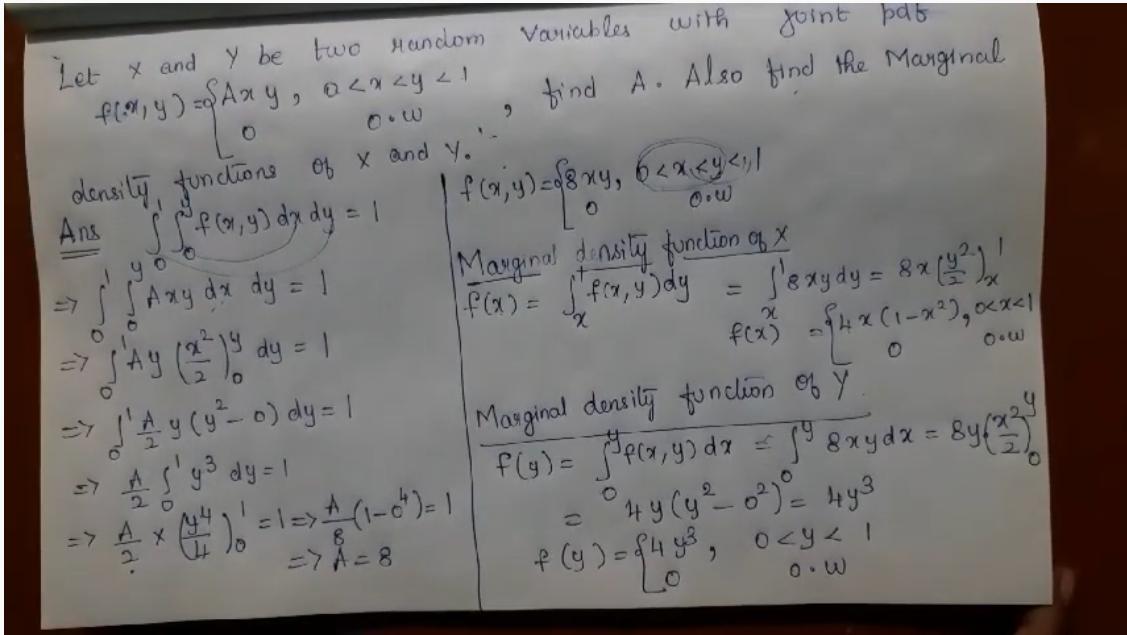 Let X and Y be two random variables with joint pdf
f(x,y) = { Axy, 0<x<y<1
0 o.w , find A. Also find the Marginal
density functions of X and Y.
Ans ∫₀¹ ∫₀ʸ f(x,y) dx dy = 1
=> ∫₀¹ ∫₀ʸ Axy dx dy = 1
=> ∫₀¹ Ay (x²/2)₀ʸ dy = 1
=> ∫₀¹ A/2 y (y² - 0) dy = 1
=> A/2 ∫₀¹ y³ dy = 1
=> A/2 × (y⁴/4)₀¹ = 1 => A/8 (1-0⁴) = 1
=> A = 8
f(x,y) = { 8xy, 0<x<y<1
0 o.w
Marginal density function of X
f(x) = ∫ₓ¹ f(x,y) dy = ∫ₓ¹ 8xy dy = 8x (y²/2)ₓ¹
f(x) = { 4x(1-x²), 0<x<1
0 o.w
Marginal density function of Y
f(y) = ∫₀ʸ f(x,y) dx = ∫₀ʸ 8xy dx = 8y (x²/2)₀ʸ
= 4y (y² - 0²) = 4y³
f(y) = { 4y³, 0<y<1
0 o.w